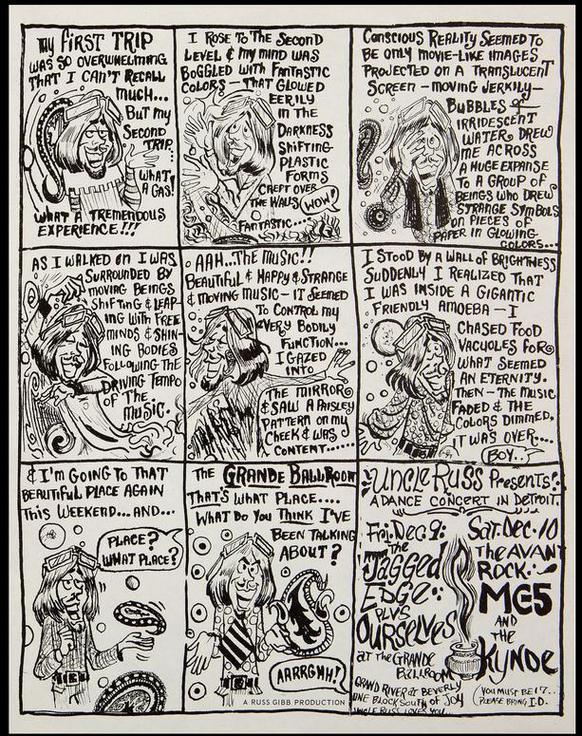 MY FIRST TRIP
WAS SO OVERWHELMING
THAT I CAN'T RECALL
MUCH...
BUT MY
SECOND
TRIP...
WHAT
A GAS!
WHAT A TREMENDOUS
EXPERIENCE!!!
I ROSE TO THE SECOND
LEVEL & MY MIND WAS
BOGGLED WITH FANTASTIC
COLORS - THAT GLOWED
EERILY
IN THE
DARKNESS
SHIFTING-
PLASTIC
FORMS
CREPT OVER
THE WALLS
WOW!
FANTASTIC...
CONSCIOUS REALITY SEEMED TO
BE ONLY MOVIE-LIKE IMAGES
PROJECTED ON A TRANSLUCENT
SCREEN - MOVING JERKILY -
BUBBLES OF
IRRIDESENT
WATER DREW
ME ACROSS
A HUGE EXPANSE
TO A GROUP OF
BEINGS WHO DREW
STRANGE SYMBOLS
ON PIECES OF
PAPER IN GLOWING
COLORS...
AS I WALKED ON I WAS
SURROUNDED BY
MOVING BEINGS
SHIFTING & LEAP-
ING WITH FREE
MINDS & SHIN-
ING BODIES
FOLLOWING THE
DRIVING TEMPO
OF THE
MUSIC.
AAH...THE MUSIC!!
BEAUTIFUL & HAPPY & STRANGE
& MOVING MUSIC - IT SEEMED
TO CONTROL MY
EVERY BODILY
FUNCTION...
I GAZED
INTO
THE MIRROR
& SAW A PAISLEY
PATTERN ON MY
CHEEK & WAS
CONTENT......
I STOOD BY A WALL OF BRIGHTNESS
SUDDENLY I REALIZED THAT
I WAS INSIDE A GIGANTIC
FRIENDLY AMOEBA - I
CHASED FOOD
VACUOLES FOR
WHAT SEEMED
AN ETERNITY.
THEN - THE MUSIC
FADED & THE
COLORS DIMMED.
IT WAS OVER....
BOY..
& I'M GOING TO THAT
BEAUTIFUL PLACE AGAIN
THIS WEEKEND...AND...
PLACE?
WHAT PLACE?
THE GRANDE BALLROOM
THAT'S WHAT PLACE....
WHAT DO YOU THINK I'VE
BEEN TALKING
ABOUT?
AARRGHH!
A RUSS GIBB PRODUCTION
UNCLE RUSS PRESENTS:
A DANCE CONCERT IN DETROIT.
FRI. DEC 9:
THE
JAGGED
EDGE:
PLUS
OURSELVES
AT THE GRANDE
BALLROOM
GRAND RIVER AT BEVERLY
ONE BLOCK SOUTH OF JOY
UNCLE RUSS LOVES YOU
SAT. DEC. 10
THE AVANT
ROCK:
MC5
AND
THE
KYNDE
(YOU MUST BE 17..
PLEASE BRING I.D.